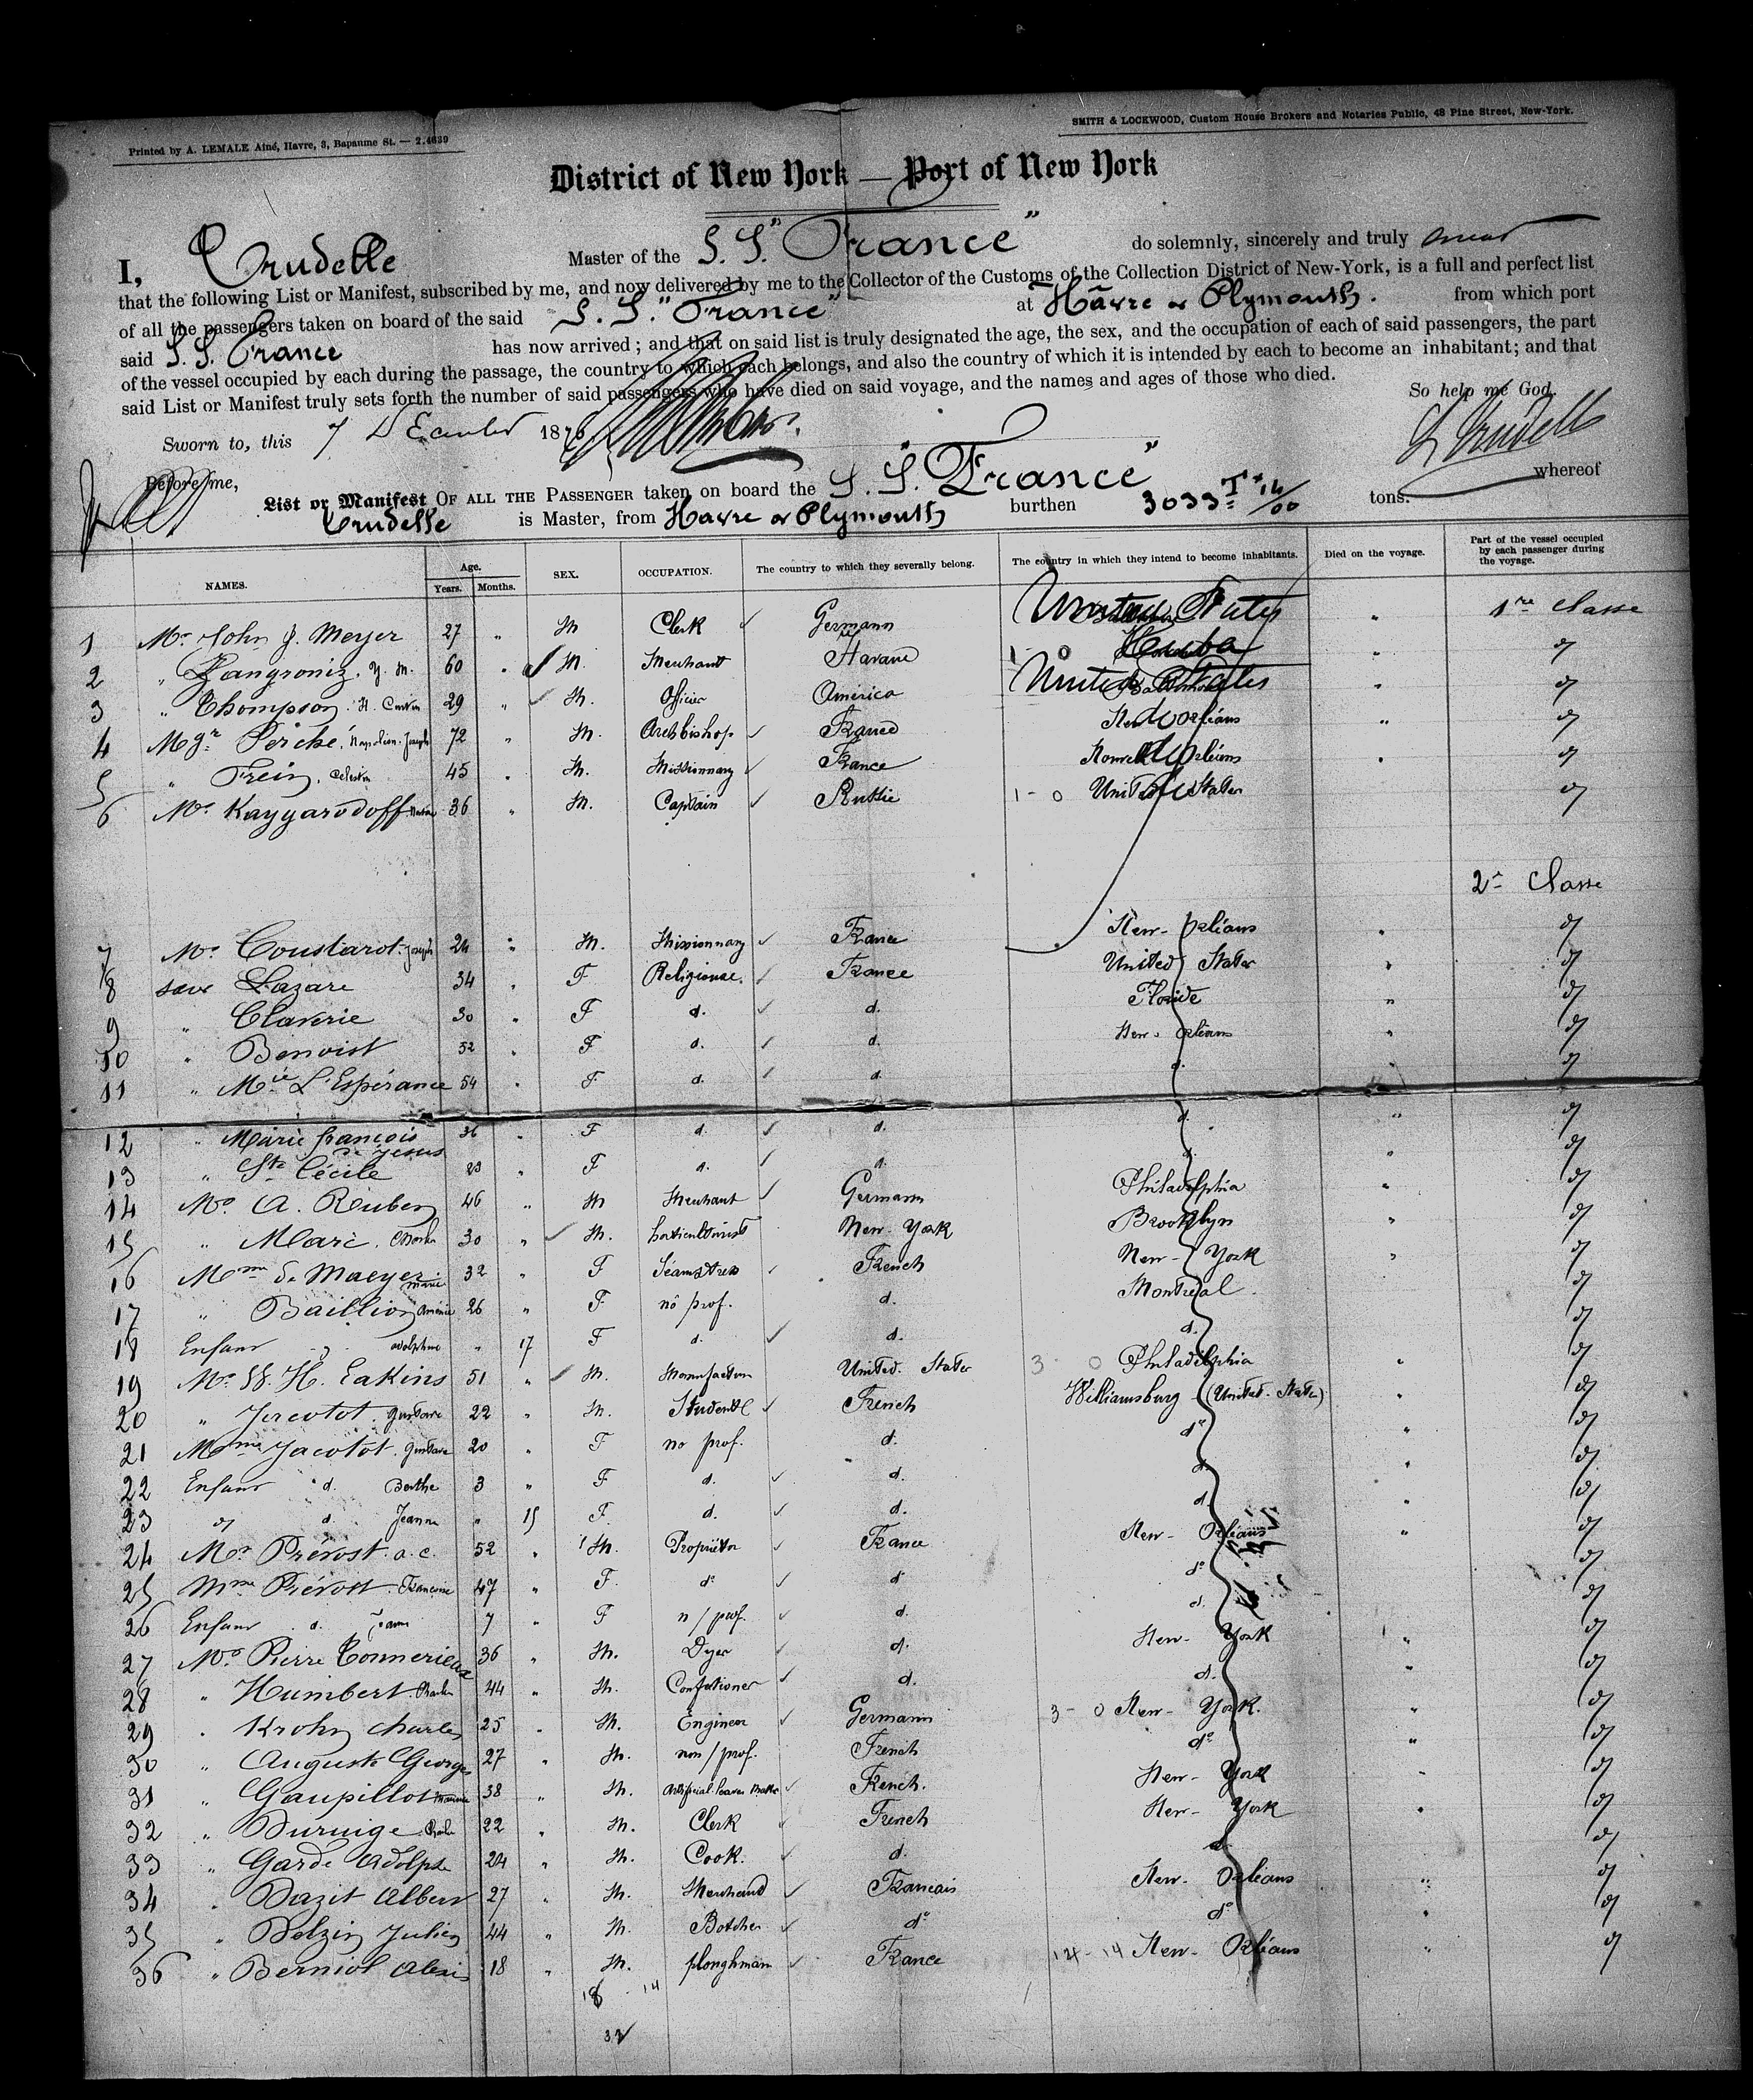 Printed by A. LEMALE Ainé, Havre, 3, Bapaume St. — 2.4639
SMITH & LOCKWOOD, Custom House Brokers and Notaries Public, 48 Pine Street, New-York.
District of New York — Port of New York
I, Trudelle Master of the S. S. "France" do solemnly, sincerely and truly swear
that the following List or Manifest, subscribed by me, and now delivered by me to the Collector of the Customs of the Collection District of New-York, is a full and perfect list
of all the passengers taken on board of the said S. S. "France" at Hâvre or Plymouth. from which port
said S. S. France has now arrived; and that on said list is truly designated the age, the sex, and the occupation of each of said passengers, the part
of the vessel occupied by each during the passage, the country to which each belongs, and also the country of which it is intended by each to become an inhabitant; and that
said List or Manifest truly sets forth the number of said passengers who have died on said voyage, and the names and ages of those who died.
So help me God.
Sworn to, this 7 December 1876
Trudelle
Before me,
List or Manifest OF ALL THE PASSENGER taken on board the S. S. "France" burthen 3033 T 14/00 tons. whereof
Trudelle is Master, from Havre or Plymouth
NAMES. Age. Years. Months. SEX. OCCUPATION. The country to which they severally belong. The country in which they intend to become inhabitants. Died on the voyage. Part of the vessel occupied by each passenger during the voyage.
1 Mr John J. Meyer 27 " M Clerk Germann United States " 1re Classe
2 " Zangroniz. Y. M. 60 " M. Merchant Havane 1 - 0 Cuba " d
3 " Thompson. H. 29 " M. Officier America United States " d
4 Mgr Perché. Napoléon. Joseph 72 " M. Archbishop France New Orléans " d
5 " Frein. Célestin 45 " M. Missionnary France Orléans " d
6 Mr Kaygarodoff 36 " M. Captain Russie 1 - 0 United States d
2e Classe
7 Mr Coustarot. Joseph 24 " M. Missionnary France New-Orléans " d
8 Sœur Lazare 34 " F Religieuse. France United States " d
9 " Claverie 30 " F d. d. Floride " d
10 " Benoist 52 " F d. d. New-Orléans " d
11 " Mie L'Espérance 54 " F d. d. d. " d
12 " Marie françois de Jesus 36 " F d. d. d. " d
13 " Ste Cécile 23 " F d. d. " d
14 Mr A. Reuben 46 " M Merchant Germann Philadelphia " d
15 " Marc. 30 " M. horticulturist New-York Brooklyn " d
16 Mme de Maeyer Marie 32 " F Seamstress French New-York " d
17 " Baillion 26 " F nô prof. d. Montreal. d
18 Enfant d. adolphine " 17 F d. d. d. d
19 Mr W. H. Eakins 51 " M. United. States 3 - 0 Philadelphia " d
20 " Jacotot. Gustave 22 " M. Student French Williamsburg (United. States) " d
21 Mme Jacotot. Gustave 20 " F no prof. d. do " d
22 Enfant d. Berthe 3 " F d. d. d. " d
23 d d. Jeanne " 15 F. d. d. d. " d
24 Mr Prévost. a. c. 52 " M. Propriétor France New-Orléans " d
25 Mme Prévost. 47 " F. do d do d
26 Enfant d. 7 " F n/prof. d. d. d
27 Mr Pierre Tonnerieux 36 " M. Dyer d. New-York " d
28 " Humbert. Charles 44 " M. Confectioner d. d. " d
29 " Krohn Charles 25 " M. Engineer Germann 3 - 0 New-York. " d
30 " Auguste Georges 27 " M. non/prof. French do " d
31 " Gaupillot 38 " M. Artificial leaves French. New-York " d
32 " Duruige 22 " M. Clerk French New-York " d
33 " Garde Adolphe 24 " M. Cook. d. d d
34 " Dazit Albert 27 " M. Merchand Francais New-Orléans " d
35 " Delzin Julien 44 " M. Botcher do do " d
36 " Berniol Alexis 18 " M. ploughmann France 14 - 14 New-Orléans " d
18 14
32